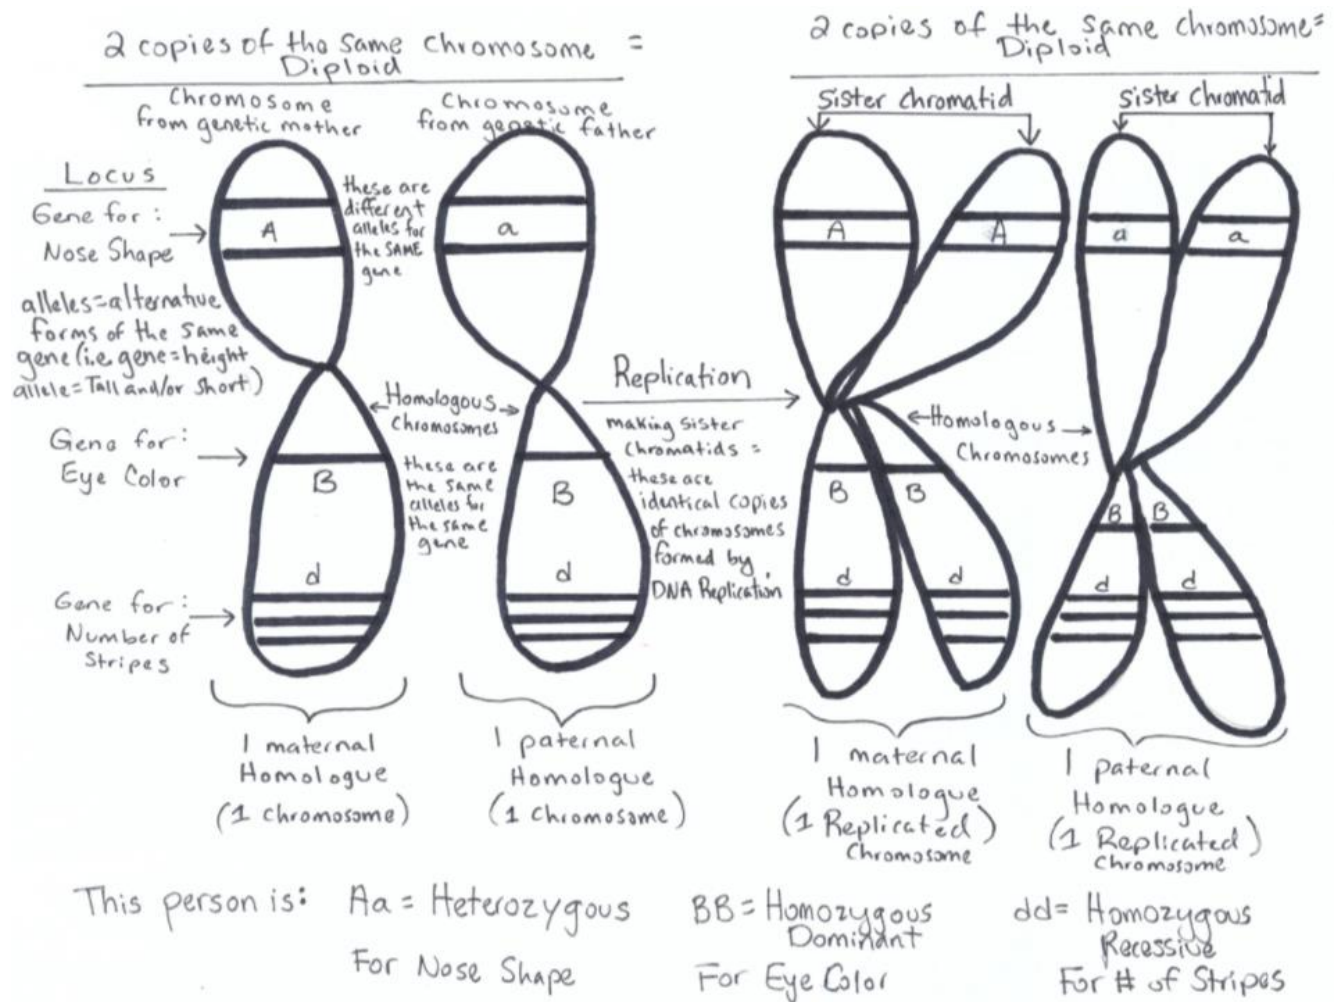 2 copies of the same chromosome =
Diploid
Chromosome
from genetic mother
Chromosome
from genetic father
Locus
Gene for :
Nose Shape
A
these are
different
alleles for
the SAME
gene
a
alleles=alternative
forms of the same
gene (i.e. gene=height
allele=Tall and/or short)
Homologous
Chromosomes
Gene for :
Eye Color
B
these are
the same
alleles for
the same
gene
B
d
d
Gene for :
Number of
Stripes
1 maternal
Homologue
(1 chromosome)
1 paternal
Homologue
(1 Chromosome)
Replication
making sister
chromatids =
these are
identical copies
of chromosomes
formed by
DNA Replication
2 copies of the same chromosome=
Diploid
Sister chromatid
sister chromatid
A
A
a
a
Homologous
Chromosomes
B
B
B
B
d
d
d
d
1 maternal
Homologue
(1 Replicated)
Chromosome
1 paternal
Homologue
(1 Replicated)
Chromosome
This person is:
Aa = Heterozygous
For Nose Shape
BB = Homozygous
Dominant
For Eye Color
dd= Homozygous
Recessive
For # of Stripes